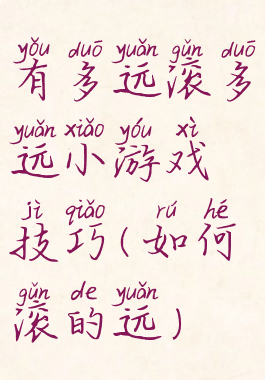 yǒu duō yuǎn gǔn duō
有多远滚多
yuǎn xiǎo yóu xì
远小游戏
jì qiǎo rú hé
技巧(如何
gǔn de yuǎn
滚的远)